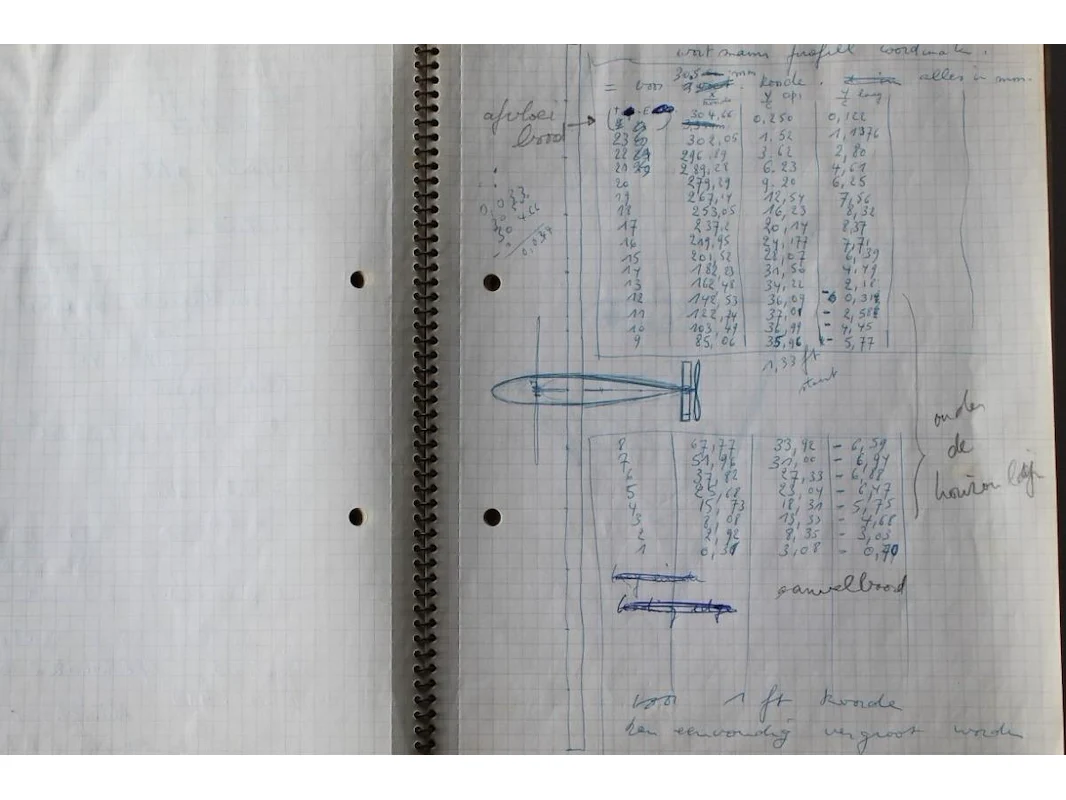 wortmann profiel coordinaten.
= voor 30,5 mm koorde. alles in mm.
x y op y laag
koorde c c
afvloei boord
304,66 0,250 0,122
23 302,05 1,52 1,1376
22 296,89 3,62 2,80
21 289,28 6,23 4,61
20 279,29 9,20 6,25
19 267,14 12,54 7,56
18 253,05 16,23 8,32
17 237,2 20,14 8,37
16 219,95 24,177 7,71
15 201,52 28,07 6,39
14 182,23 31,50 4,49
13 162,48 34,22 2,18
12 142,53 36,09 - 0,31
11 122,74 37,01 - 2,58
10 103,49 36,99 - 4,45
9 85,06 35,96 - 5,77
1,33 ft
8 67,77 33,92 - 6,59
7 51,96 31,00 - 6,94
6 37,82 27,33 - 6,88
5 25,68 23,04 - 6,47
4 15,73 18,31 - 5,75
3 8,08 13,33 - 4,68
2 2,92 8,35 - 3,03
1 0,31 3,08 - 0,70
onder
de
horizon lijn
aanvalboord
voor 1 ft koorde
kan eenvoudig vergroot worden